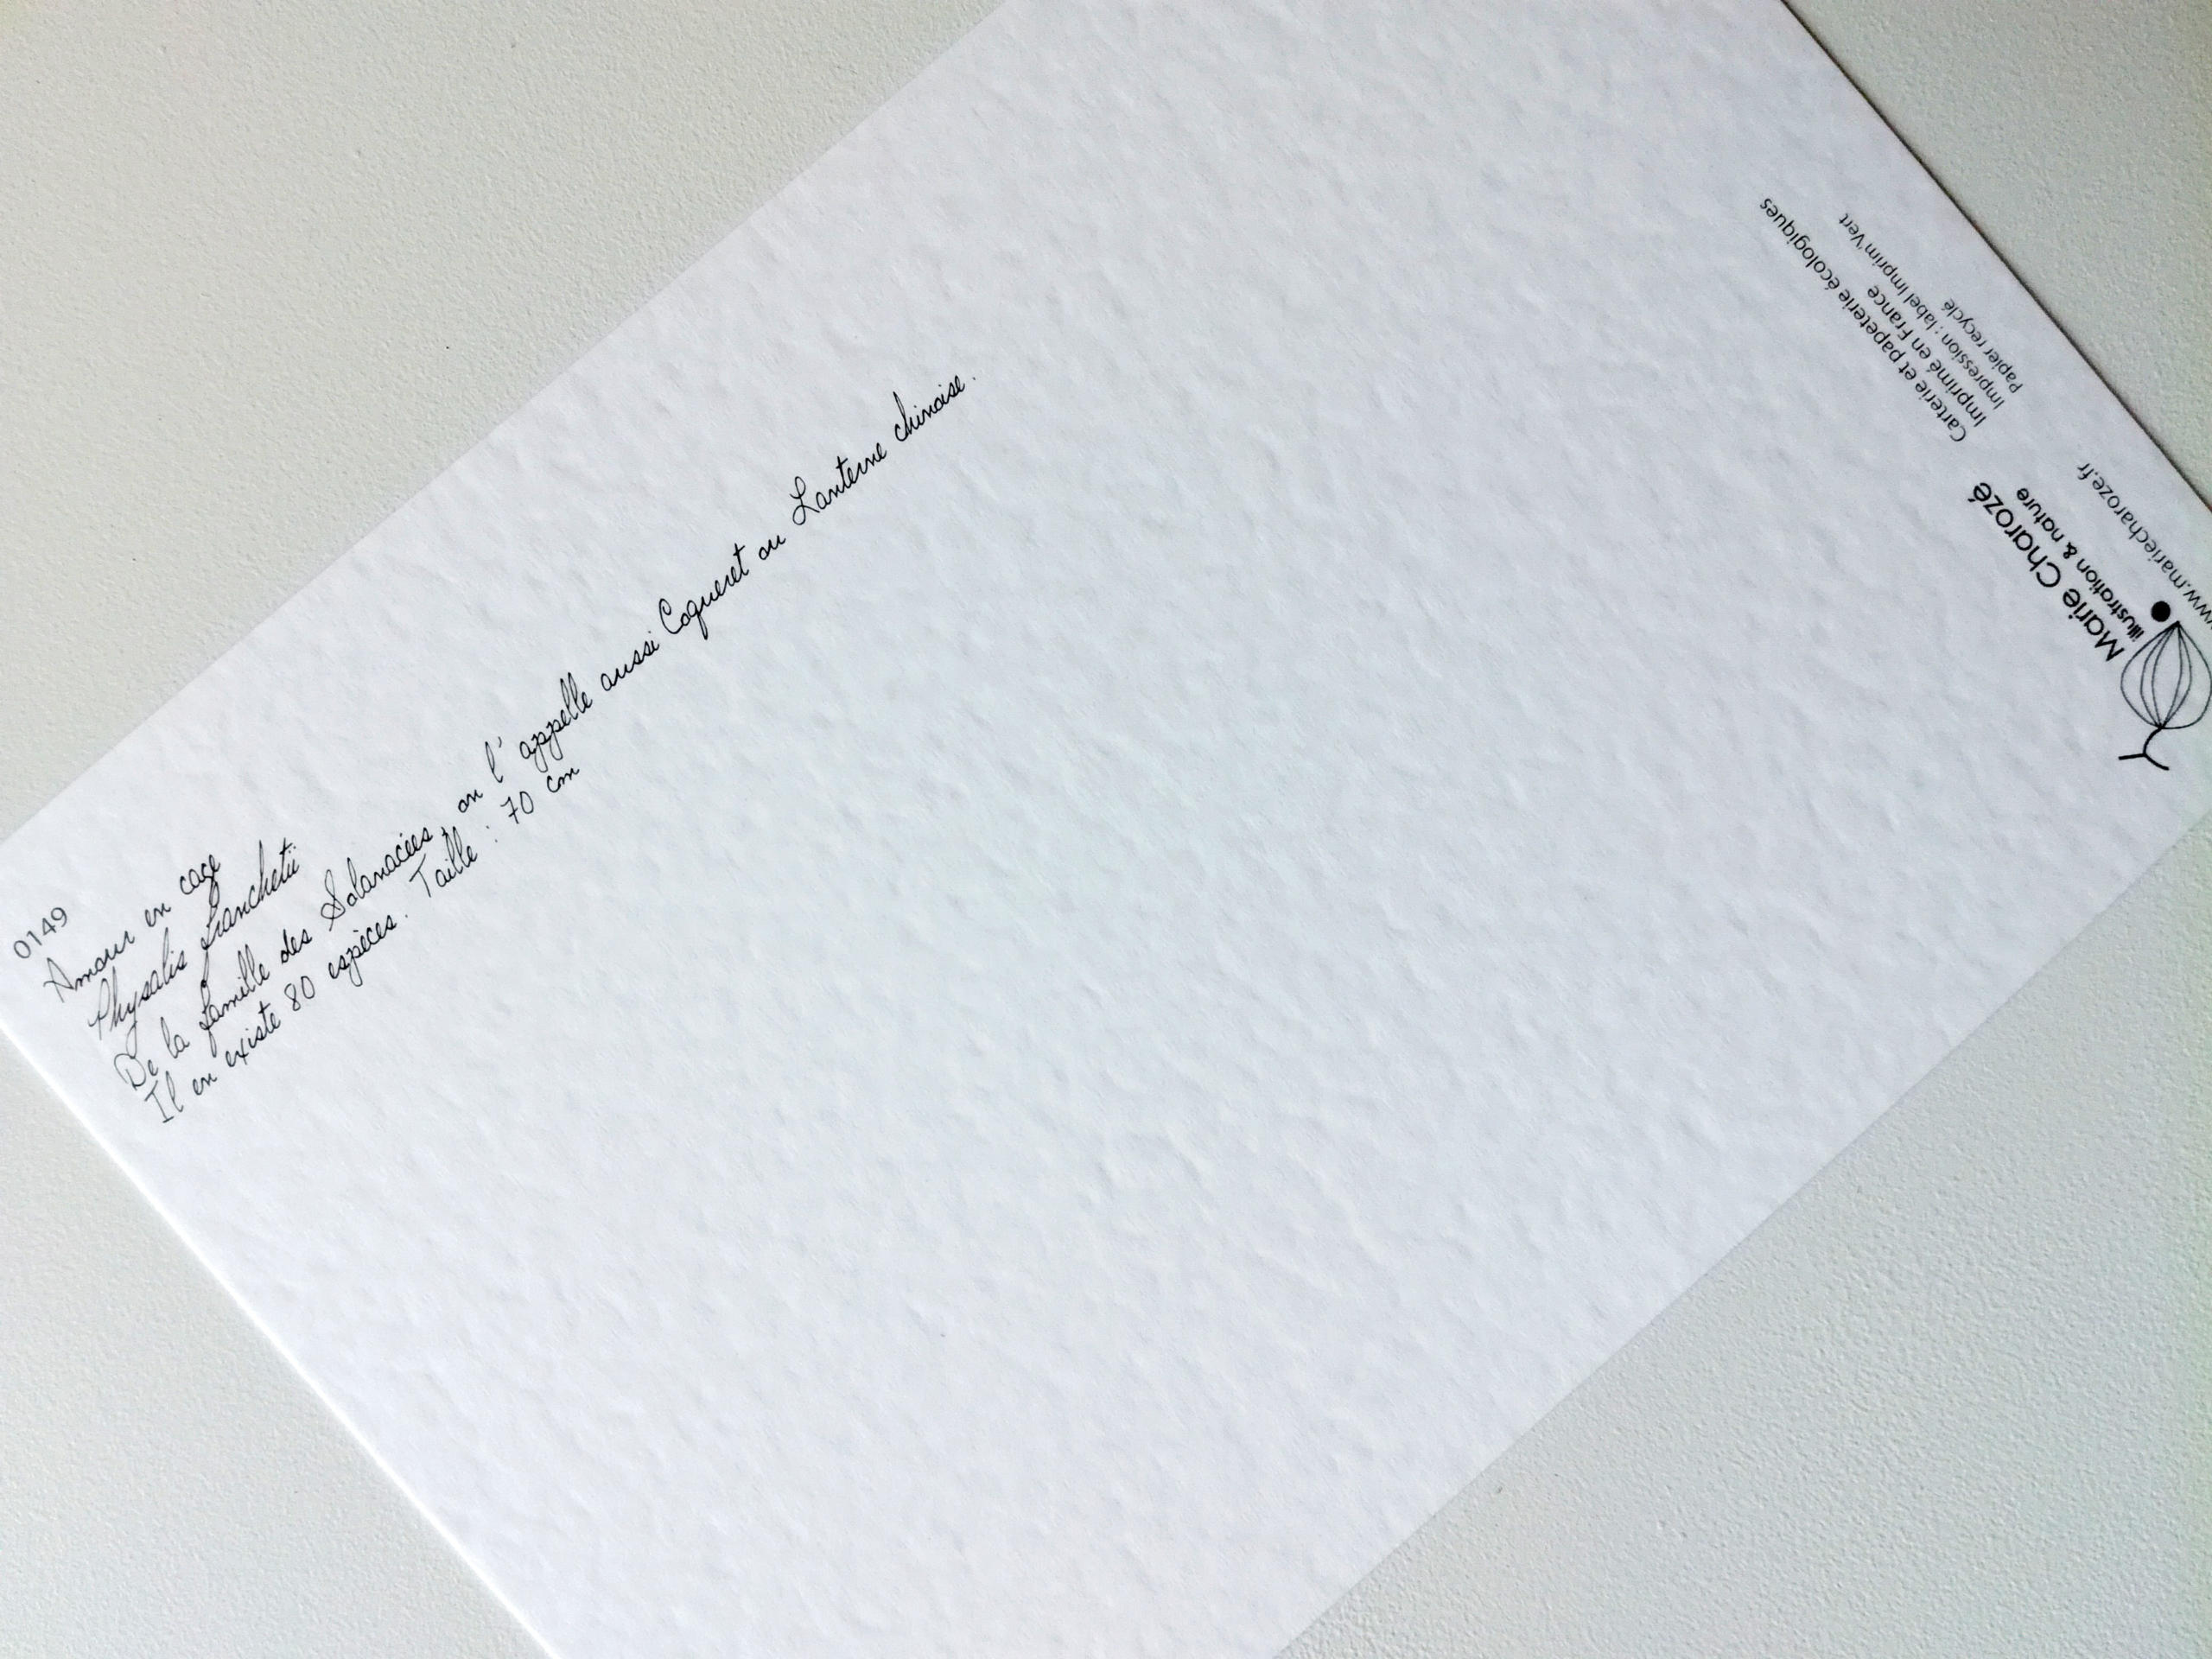 0149
Amour en cage
Physalis franchetii
De la famille des Solanacées, on l'appelle aussi Coqueret ou Lanterne chinoise.
Il en existe 80 espèces. Taille : 70 cm
Marie Charozé
illustration & nature
www.mariecharoze.fr
Carterie et papeterie écologiques
Imprimé en France
Impression : label Imprim'Vert
Papier recyclé